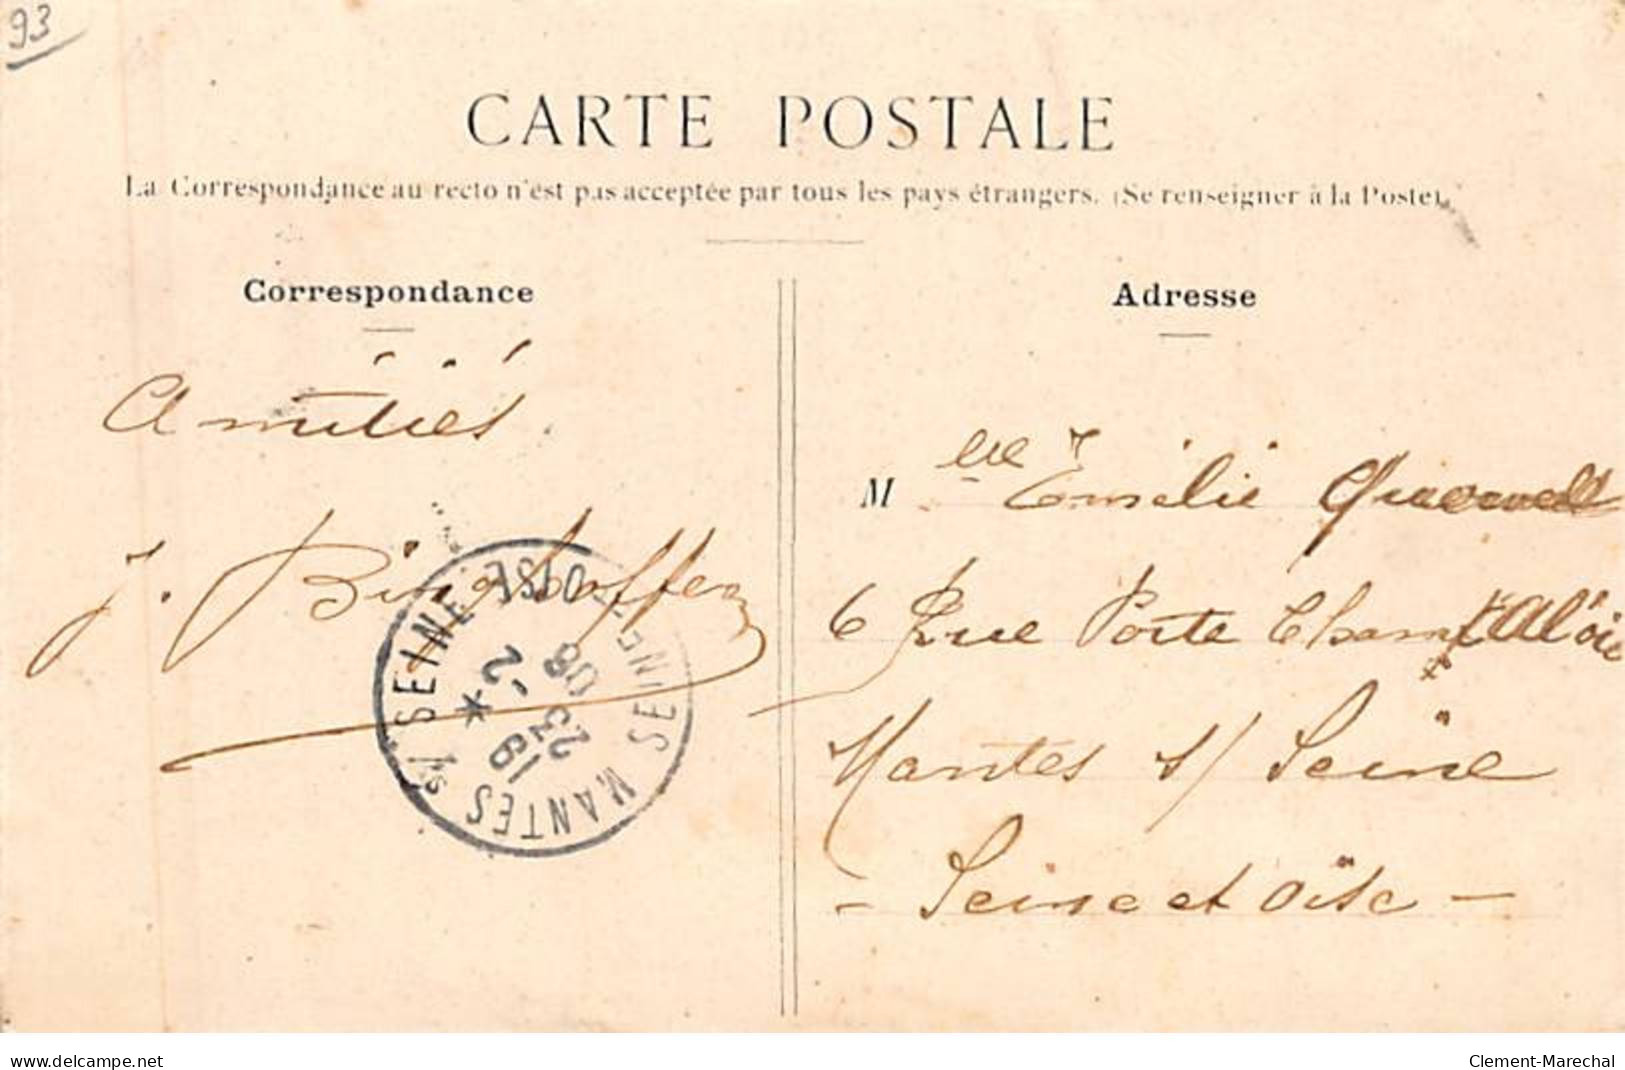 93
CARTE POSTALE
La Correspondance au recto n'est pas acceptée par tous les pays étrangers. (Se renseigner à la Poste).
Correspondance
Amitiés.
J. Binghoffer
MANTES s/ SEINE
SEINE-ET-OISE
2 *
23 -9
08
Adresse
Mlle Emélie
6 Rue Porte Chant à l'oie
Mantes s/ Seine
- Seine et Oise -
www.delcampe.net
Clement-Marechal